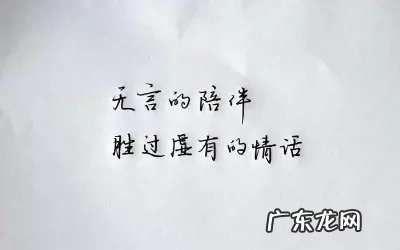 无言的陪伴
胜过虚有的情话
广东龙网